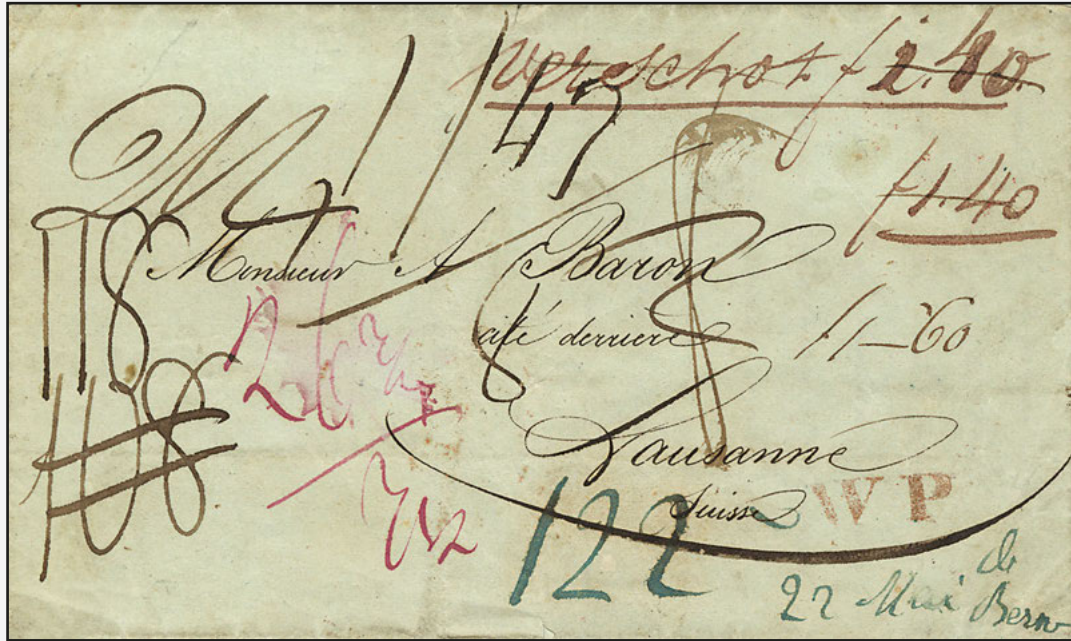 verschot f 2.40
47
f 1.40
118
Monsieur A Baron
cité derrière
f 1-60
108
Lausanne
Suisse
WP
122
22 Mai de Bern